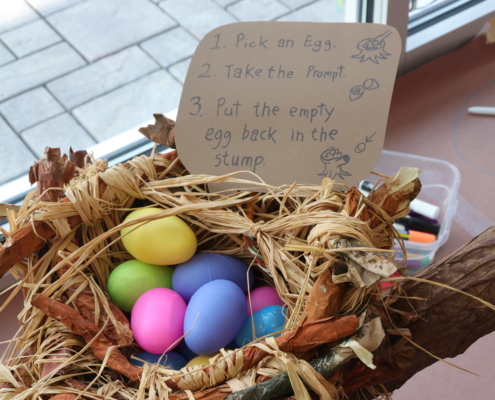 1. Pick an Egg.
2. Take the Prompt.
3. Put the empty
egg back in the
stump.